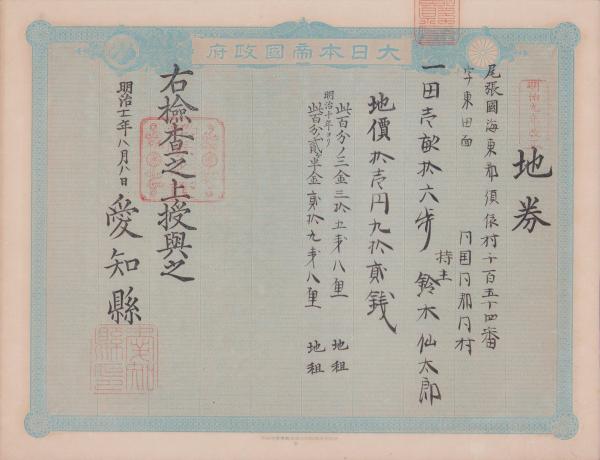 大日本帝國政府
地券
尾張國海東郡須依村千百五十四番
字東田面 同国同郡同村
一田壱畝拾六歩 持主 鈴木仙太郎
地價拾壱円九拾貳銭
此百分ノ三金三拾五銭八厘 地租
明治十年ヨリ
此百分ノ貳半金貳拾九銭八厘 地租
右檢査之上授與之
明治十二年八月八日
愛知縣